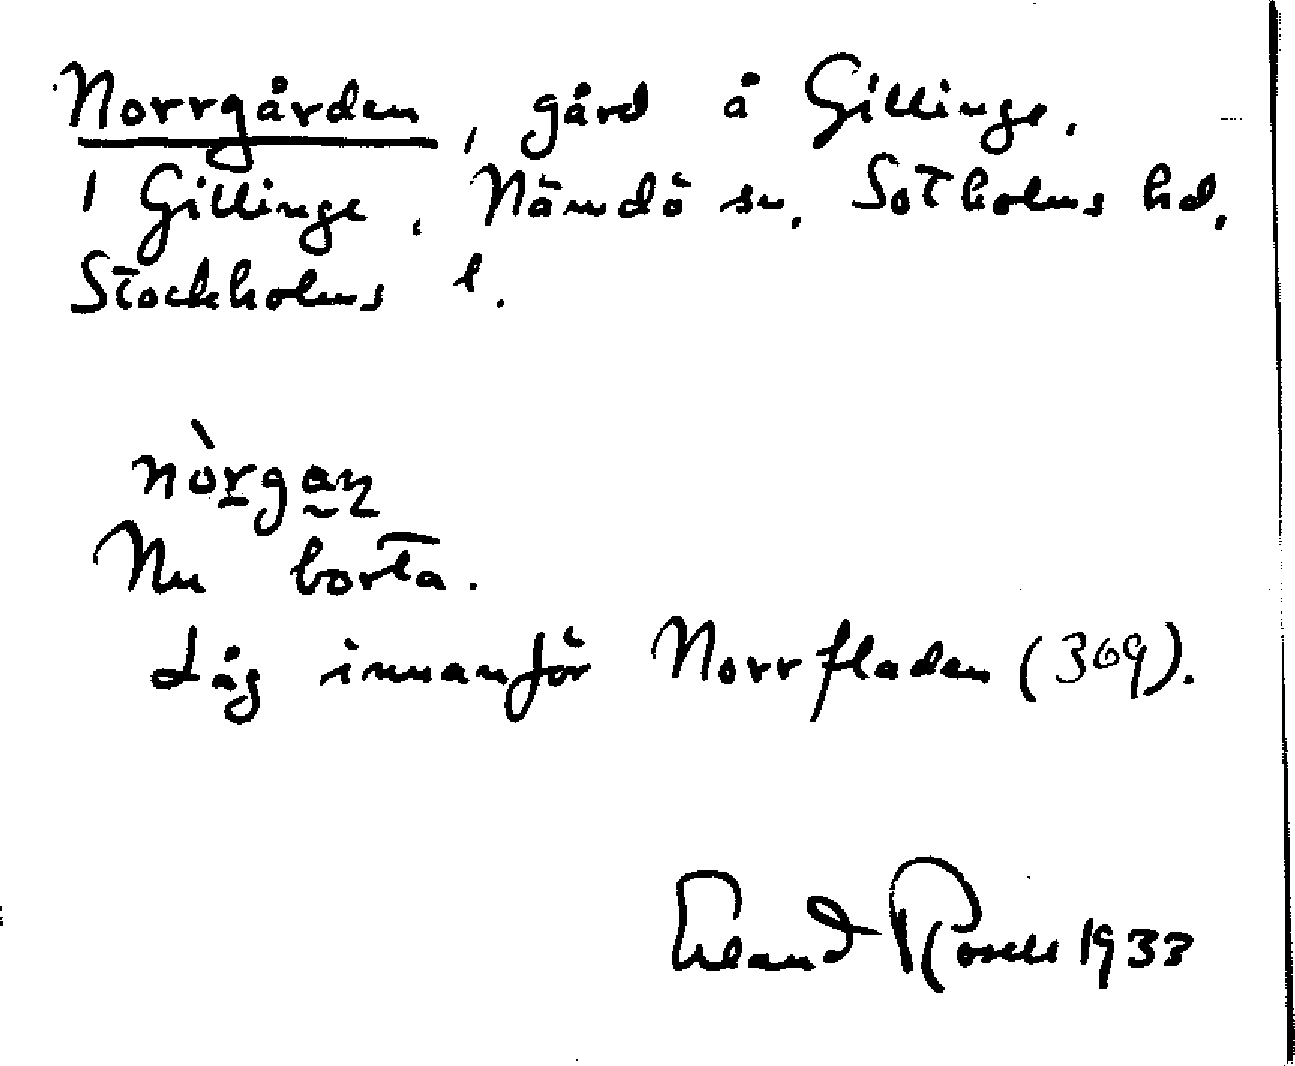 Norrgården, gård å Gillinge.
1 Gillinge, Nämdö sn, Sotholms hd,
Stockholms l.
nòrgan
Nu borta.
Låg innanför Norrfladen (369).
Erland Rosell 1933